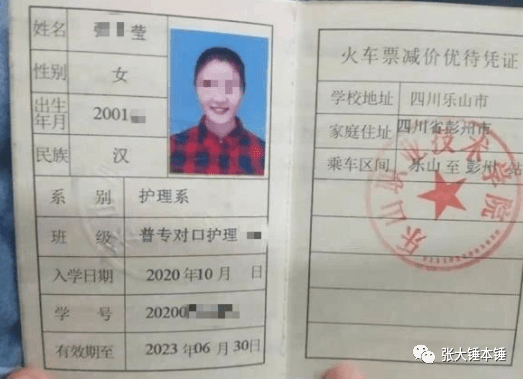 姓名 莹
性别 女
出生年月 2001
民族 汉
系别 护理系
班级 普专对口护理
入学日期 2020 年 10 月 日
学号 20200
有效期至 2023 年 06 月 30 日
火车票减价优待凭证
学校地址 四川乐山市
家庭住址 四川省彭州市
乘车区间 乐山 至 彭州 站
乐山职业技术学院
张大锤本锤